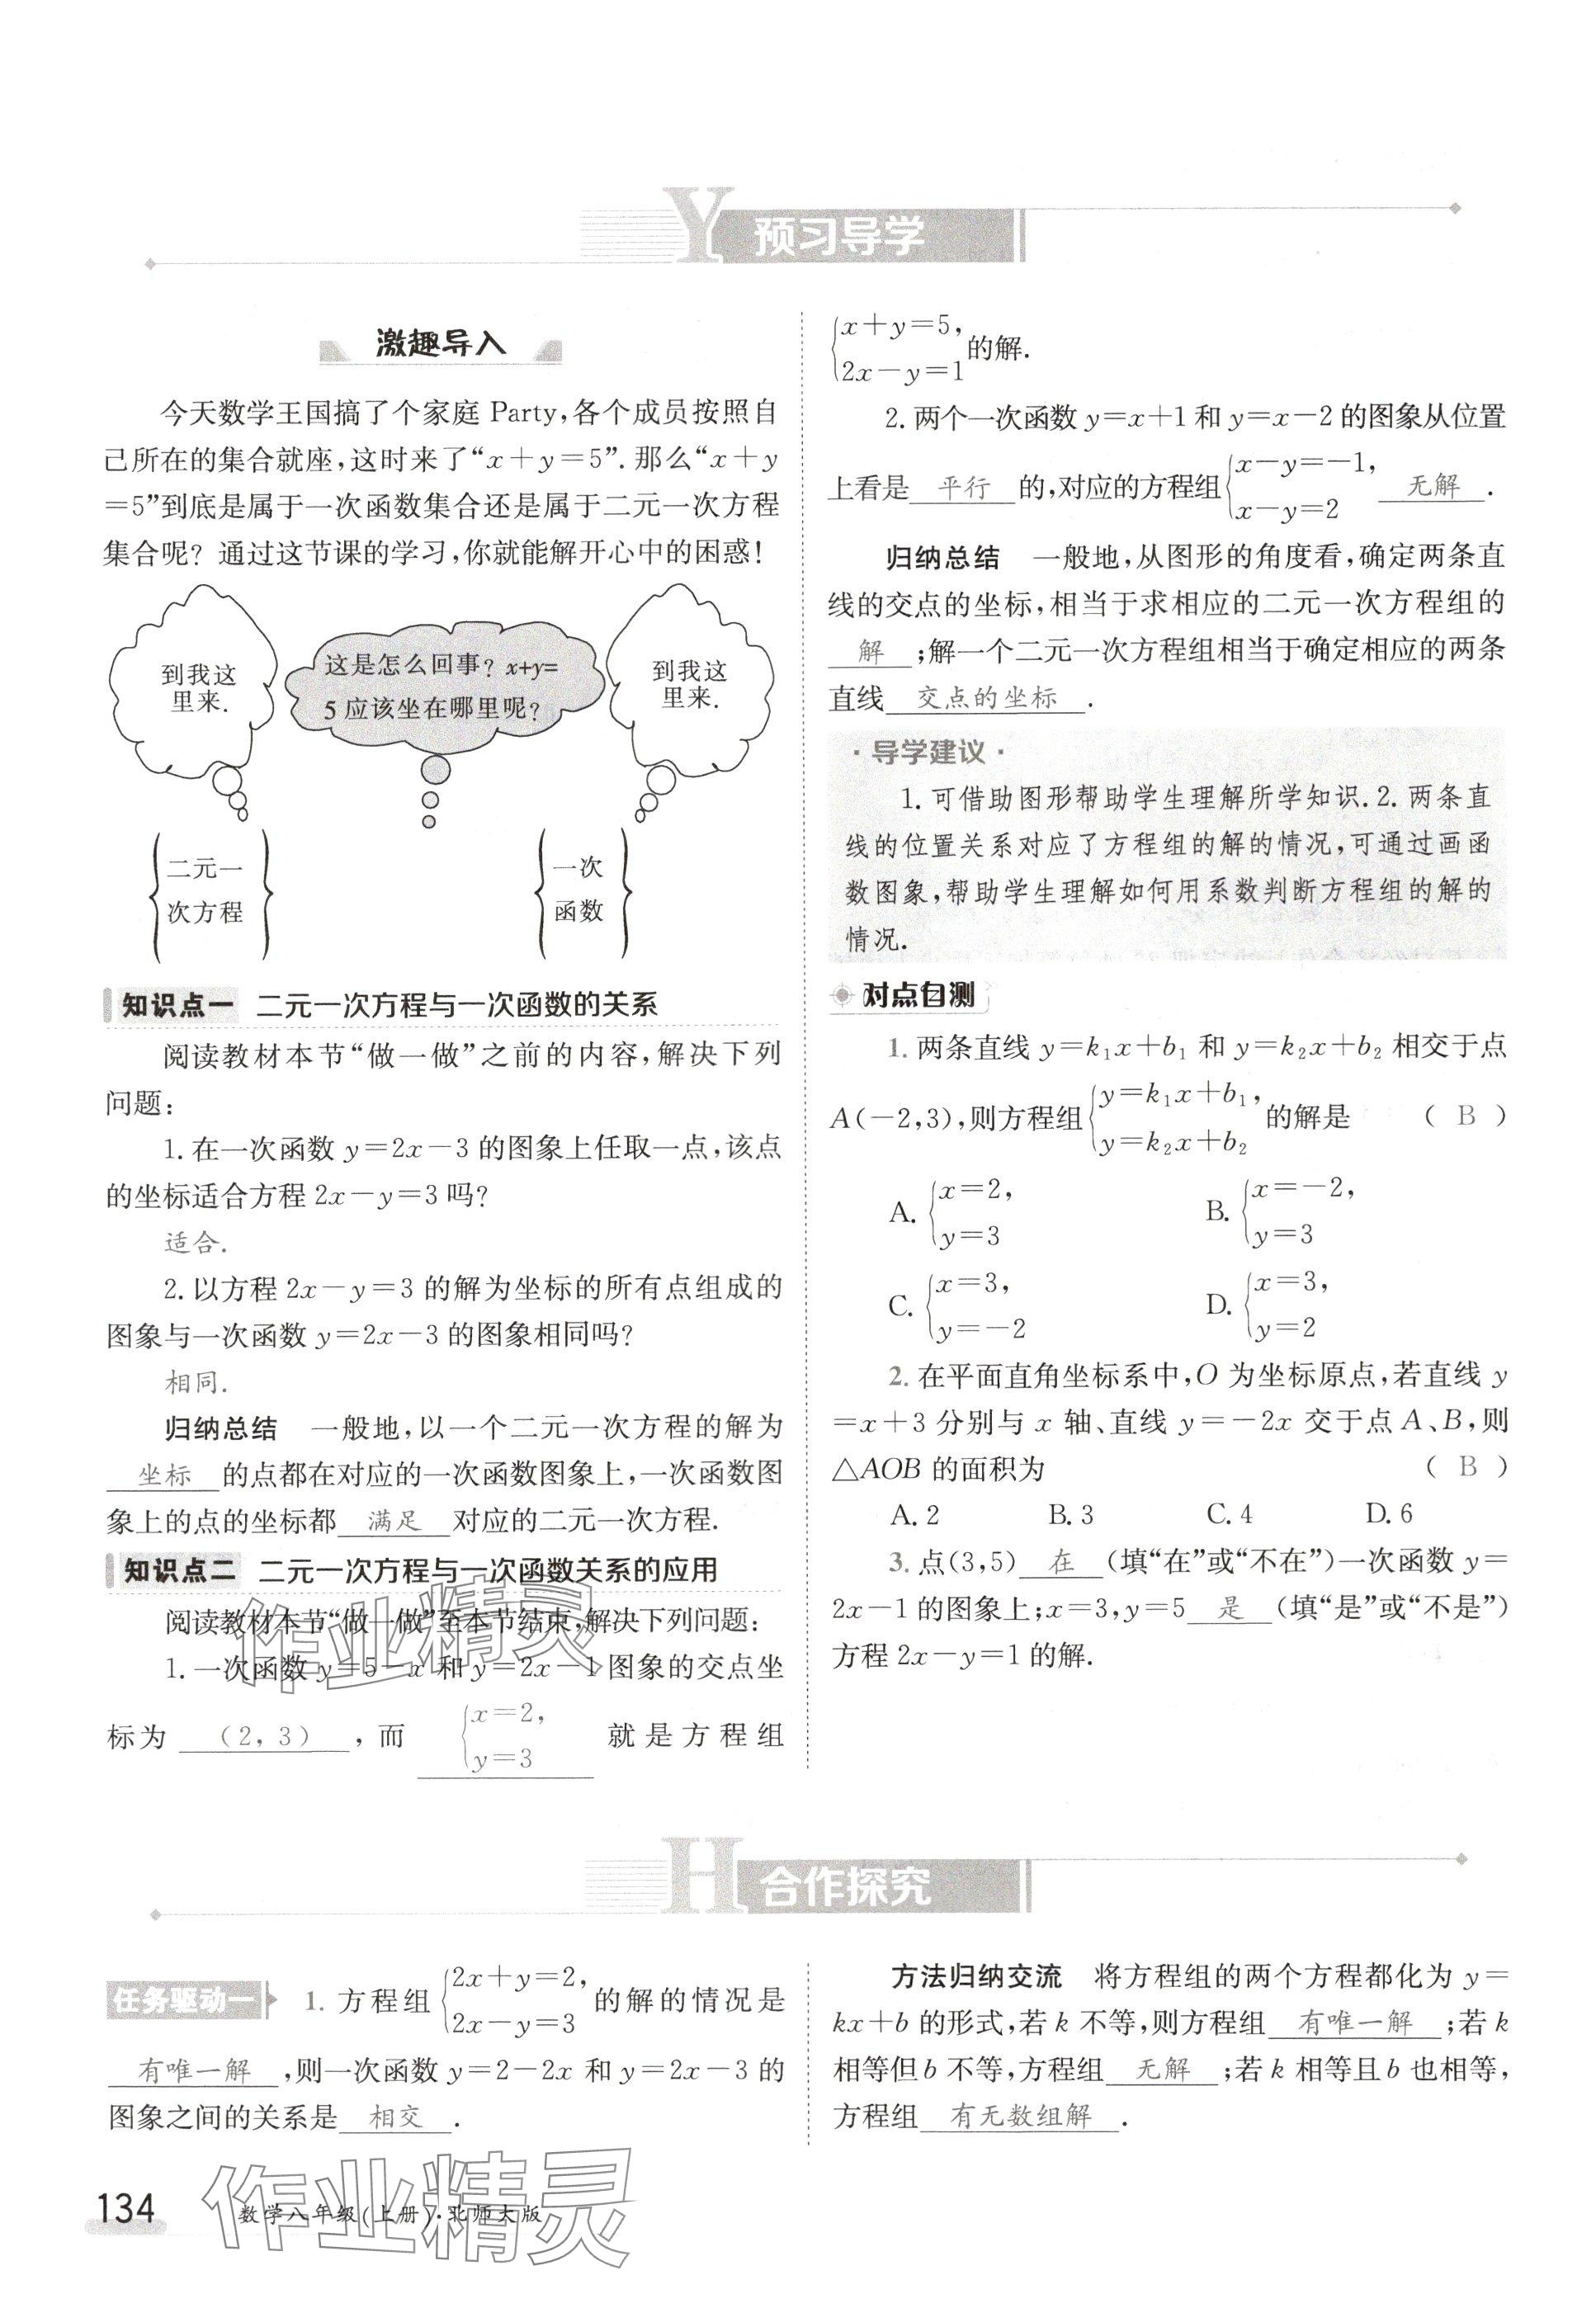 Y 预习导学
激趣导入
今天数学王国搞了个家庭 Party,各个成员按照自
己所在的集合就座,这时来了“x+y=5”.那么“x+y
=5”到底是属于一次函数集合还是属于二元一次方程
集合呢?通过这节课的学习,你就能解开心中的困惑!
到我这
里来.
这是怎么回事?x+y=
5应该坐在哪里呢?
到我这
里来.
二元一
次方程
一次
函数
知识点一 二元一次方程与一次函数的关系
阅读教材本节“做一做”之前的内容,解决下列
问题:
1.在一次函数 y=2x-3 的图象上任取一点,该点
的坐标适合方程 2x-y=3 吗?
适合.
2.以方程 2x-y=3 的解为坐标的所有点组成的
图象与一次函数 y=2x-3 的图象相同吗?
相同.
归纳总结 一般地,以一个二元一次方程的解为
坐标 的点都在对应的一次函数图象上,一次函数图
象上的点的坐标都 满足 对应的二元一次方程.
知识点二 二元一次方程与一次函数关系的应用
阅读教材本节“做一做”至本节结束,解决下列问题:
1.一次函数 y=5-x 和 y=2x-1 图象的交点坐
标为 (2,3) ,而 {x=2, y=3 就是方程组
{x+y=5, 2x-y=1 的解.
2.两个一次函数 y=x+1 和 y=x-2 的图象从位置
上看是 平行 的,对应的方程组{x-y=-1, x-y=2 无解 .
归纳总结 一般地,从图形的角度看,确定两条直
线的交点的坐标,相当于求相应的二元一次方程组的
解 ;解一个二元一次方程组相当于确定相应的两条
直线 交点的坐标 .
·导学建议·
1.可借助图形帮助学生理解所学知识.2.两条直
线的位置关系对应了方程组的解的情况,可通过画函
数图象,帮助学生理解如何用系数判断方程组的解的
情况.
对点自测
1.两条直线 y=k₁x+b₁ 和 y=k₂x+b₂ 相交于点
A(-2,3),则方程组{y=k₁x+b₁, y=k₂x+b₂ 的解是 ( B )
A.{x=2, y=3 B.{x=-2, y=3
C.{x=3, y=-2 D.{x=3, y=2
2.在平面直角坐标系中,O 为坐标原点,若直线 y
=x+3 分别与 x 轴、直线 y=-2x 交于点 A、B,则
△AOB 的面积为 ( B )
A.2 B.3 C.4 D.6
3.点(3,5) 在 (填“在”或“不在”)一次函数 y=
2x-1 的图象上;x=3,y=5 是 (填“是”或“不是”)
方程 2x-y=1 的解.
H 合作探究
任务驱动一 1.方程组{2x+y=2, 2x-y=3 的解的情况是
有唯一解 ,则一次函数 y=2-2x 和 y=2x-3 的
图象之间的关系是 相交 .
方法归纳交流 将方程组的两个方程都化为 y=
kx+b 的形式,若 k 不等,则方程组 有唯一解 ;若 k
相等但 b 不等,方程组 无解 ;若 k 相等且 b 也相等,
方程组 有无数组解 .
134 数学八年级(上册)·北师大版
作业精灵
作业精灵